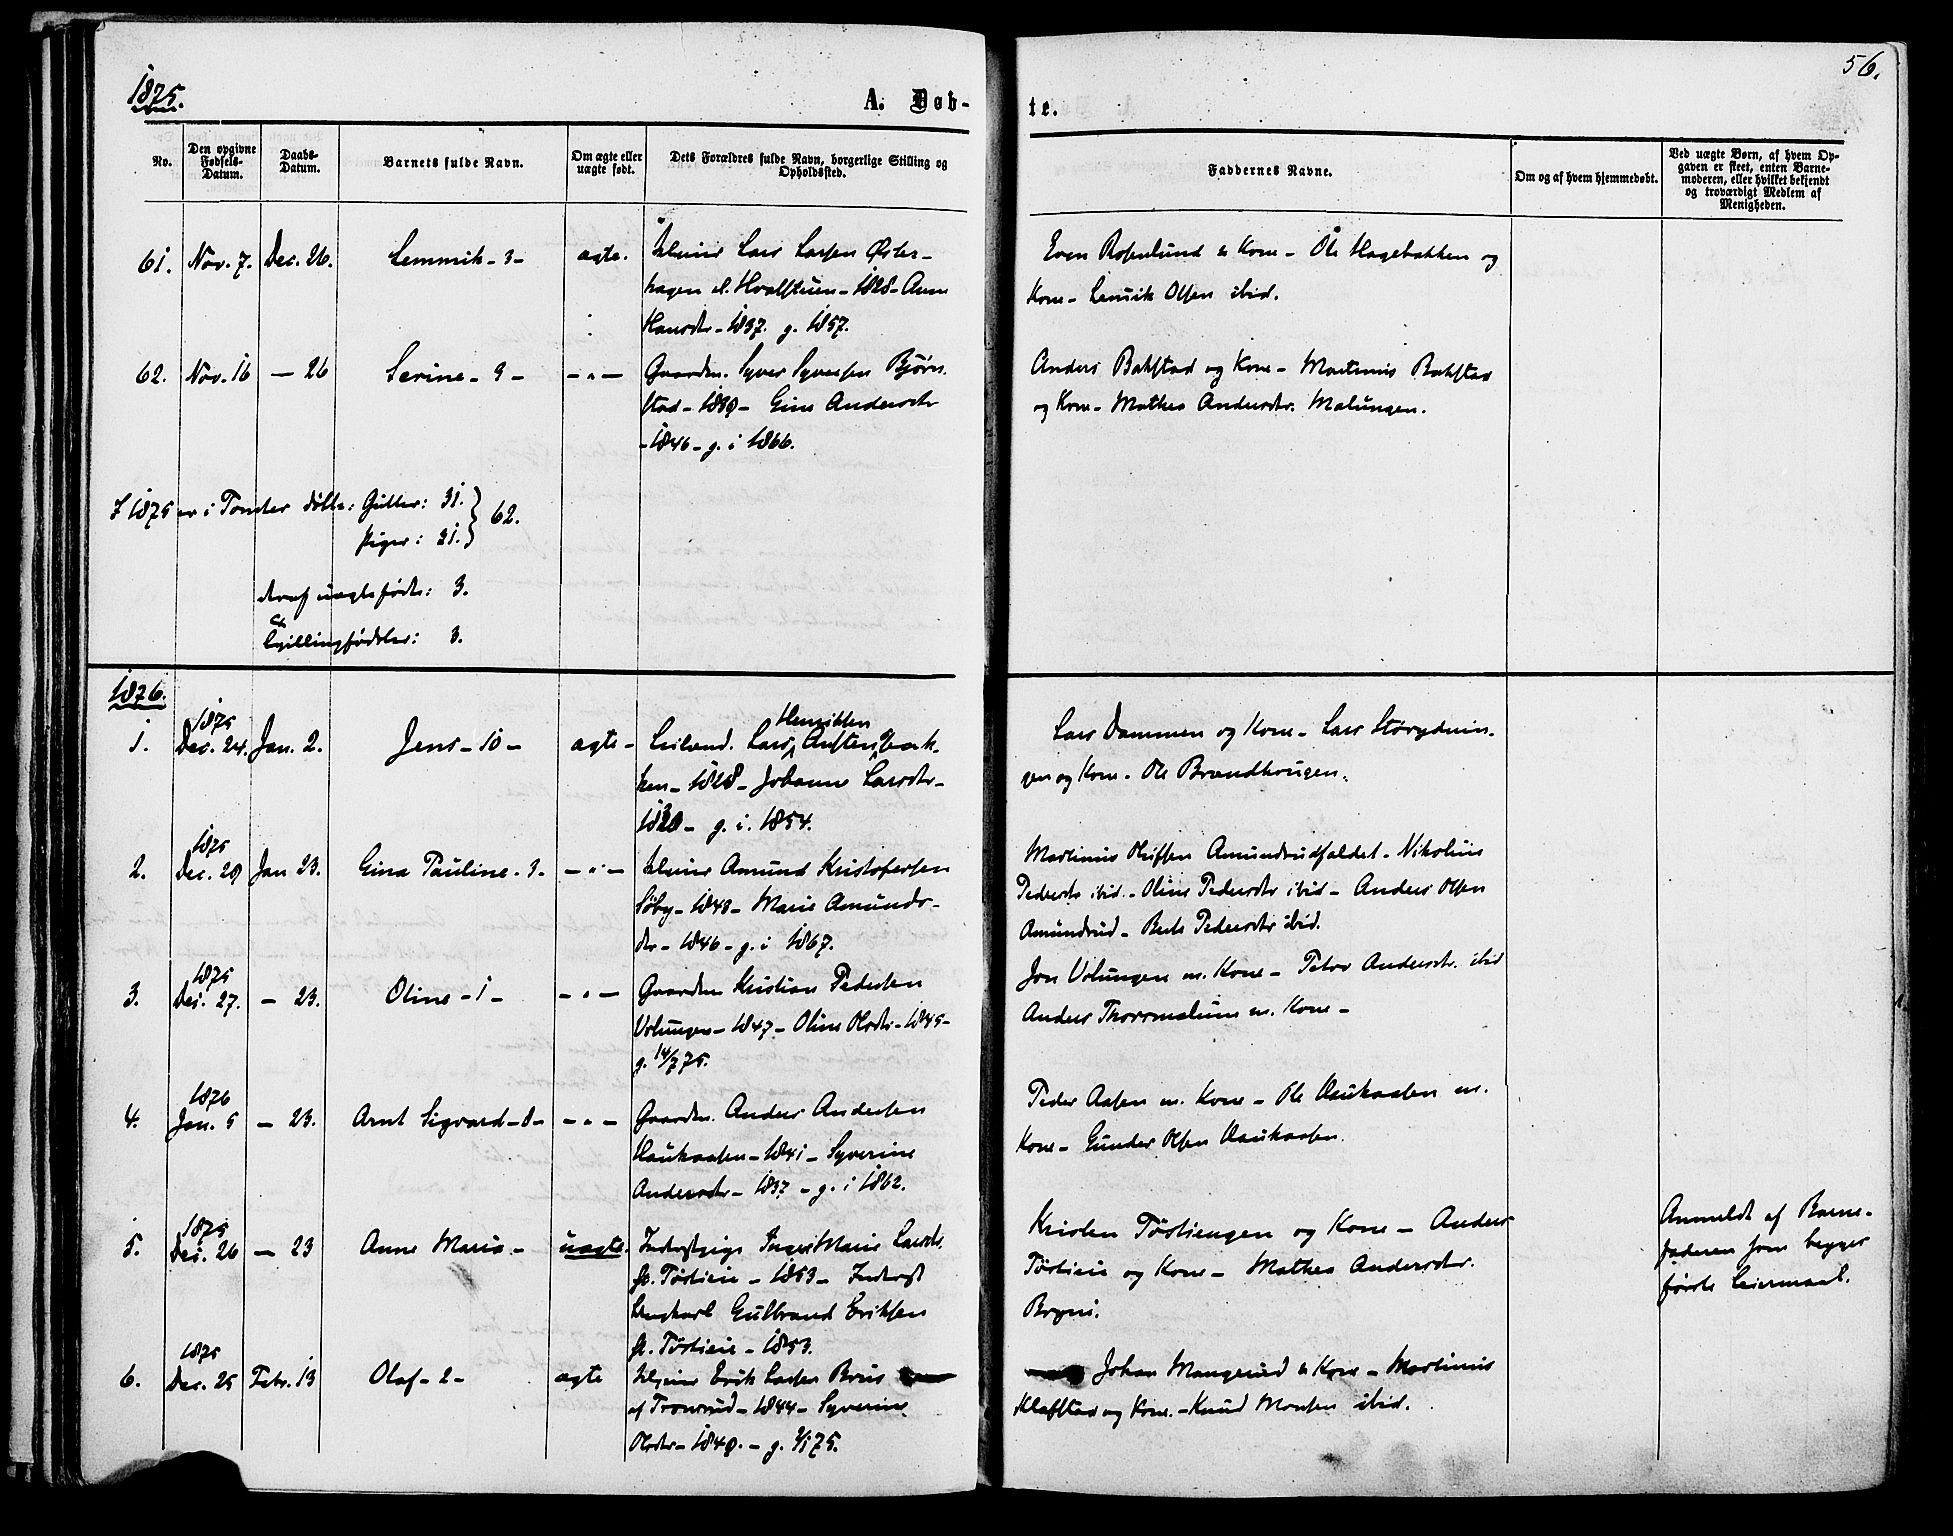 1875.
A. Døb-
te.
56.
No.
Den opgivne Fødsels-Datum.
Daabs-Datum.
Barnets fulde Navn.
Om ægte eller uægte født.
Dets Forældres fulde Navn, borgerlige Stilling og Opholdssted.
Faddernes Navne.
Om og af hvem hjemmedøbt.
Ved uægte Børn, af hvem Op-
gaven er skeet, enten Barne-
moderen, eller hvilket bekjendt
og troværdigt Medlem af
Menigheden.
61. Nov. 7. Dec. 26. Lemmik - 3 - ægte.
Lars Larsen Øster-
hagen Hvalstuen - 1828 - Anne
Hansdtr - 1837. g. 1857.
Even Rosenlund & Kone - Ole Hagebakken og
Kone - Olsen ibid.
62. Nov. 16 - 26 Serine - 9 - - " -
Gaardm. Syver Syversen Bjørn-
stad - Gine Andersdtr
- 1846 - g. i 1866.
Anders Bakstad og Kone - Martinus Bakstad
og Kone - Mathea Andersdtr. Malungen.
I 1875 er i Tomter døbte: Gutter: 31. } 62.
Piger:
deraf uægte fødte: 3.
Tvillingfødsler: 3.
1876.
1. 1875 Dec. 24. Jan. 2. Jens - 10 - ægte -
Leilænd. Lars Henriksen
- 1828 - Johanne Larsdtr -
g. i. 1854.
Lars Dammen og Kone - Lars
gen og Kone - Ole Brændhougen.
2. 1875 Dec. 29 Jan 23. Gina Pauline - 3. - " -
Amund Kristofersen
Søby - 1843 - Marie Amunds-
dtr - 1846 - g. i 1867.
Martinus Amundrudfaldet - Nikoline
Pedersdtr ibid. - Oline Pedersdtr ibid - Anders Olsen
Amundrud - Pedersdtr ibid.
3. 1875 Dec. 27. - 23. Oline - 1 - - " -
Gaardm Kristian Pedersen
Volungen - 1847 - Oline Olsdtr - 1845 -
g. 14/7 75.
Jon Volungen m. Kone - Andersdtr. ibid
Anders m. Kone -
4. 1876 Jan. 5 - 23. Arnt Sigvard - 8 - - " -
Gaardm. Anders Andersen
Haukaasen - 1841 - Syverine
Andersdtr - 1837 - g. i 1862.
Peder Aasen m. Kone - Ole Haukaasen m.
Kone - Gunder Olsen Haukaasen.
5. 1875 Dec. 26 - 23 Anne Maria - uægte.
Inger Marie Larsdtr.
- 1853 -
Gulbrand Eriksen
- 1853.
og Kone - Anders
og Kone - Mathea Andersdtr.
Bryni.
Anmeldt af Barne-
faderen som begges
første Leiermaal.
6. 1875 Dec. 25 Febr. 13 Olaf - 2 - ægte
Erik Larsen Brus
af Tronsrud - 1844 - Syverine
Olsdtr -
Johan Mangerud & Kone - Martinus
Klafstad og Kone. - Knud Monsen ibid.